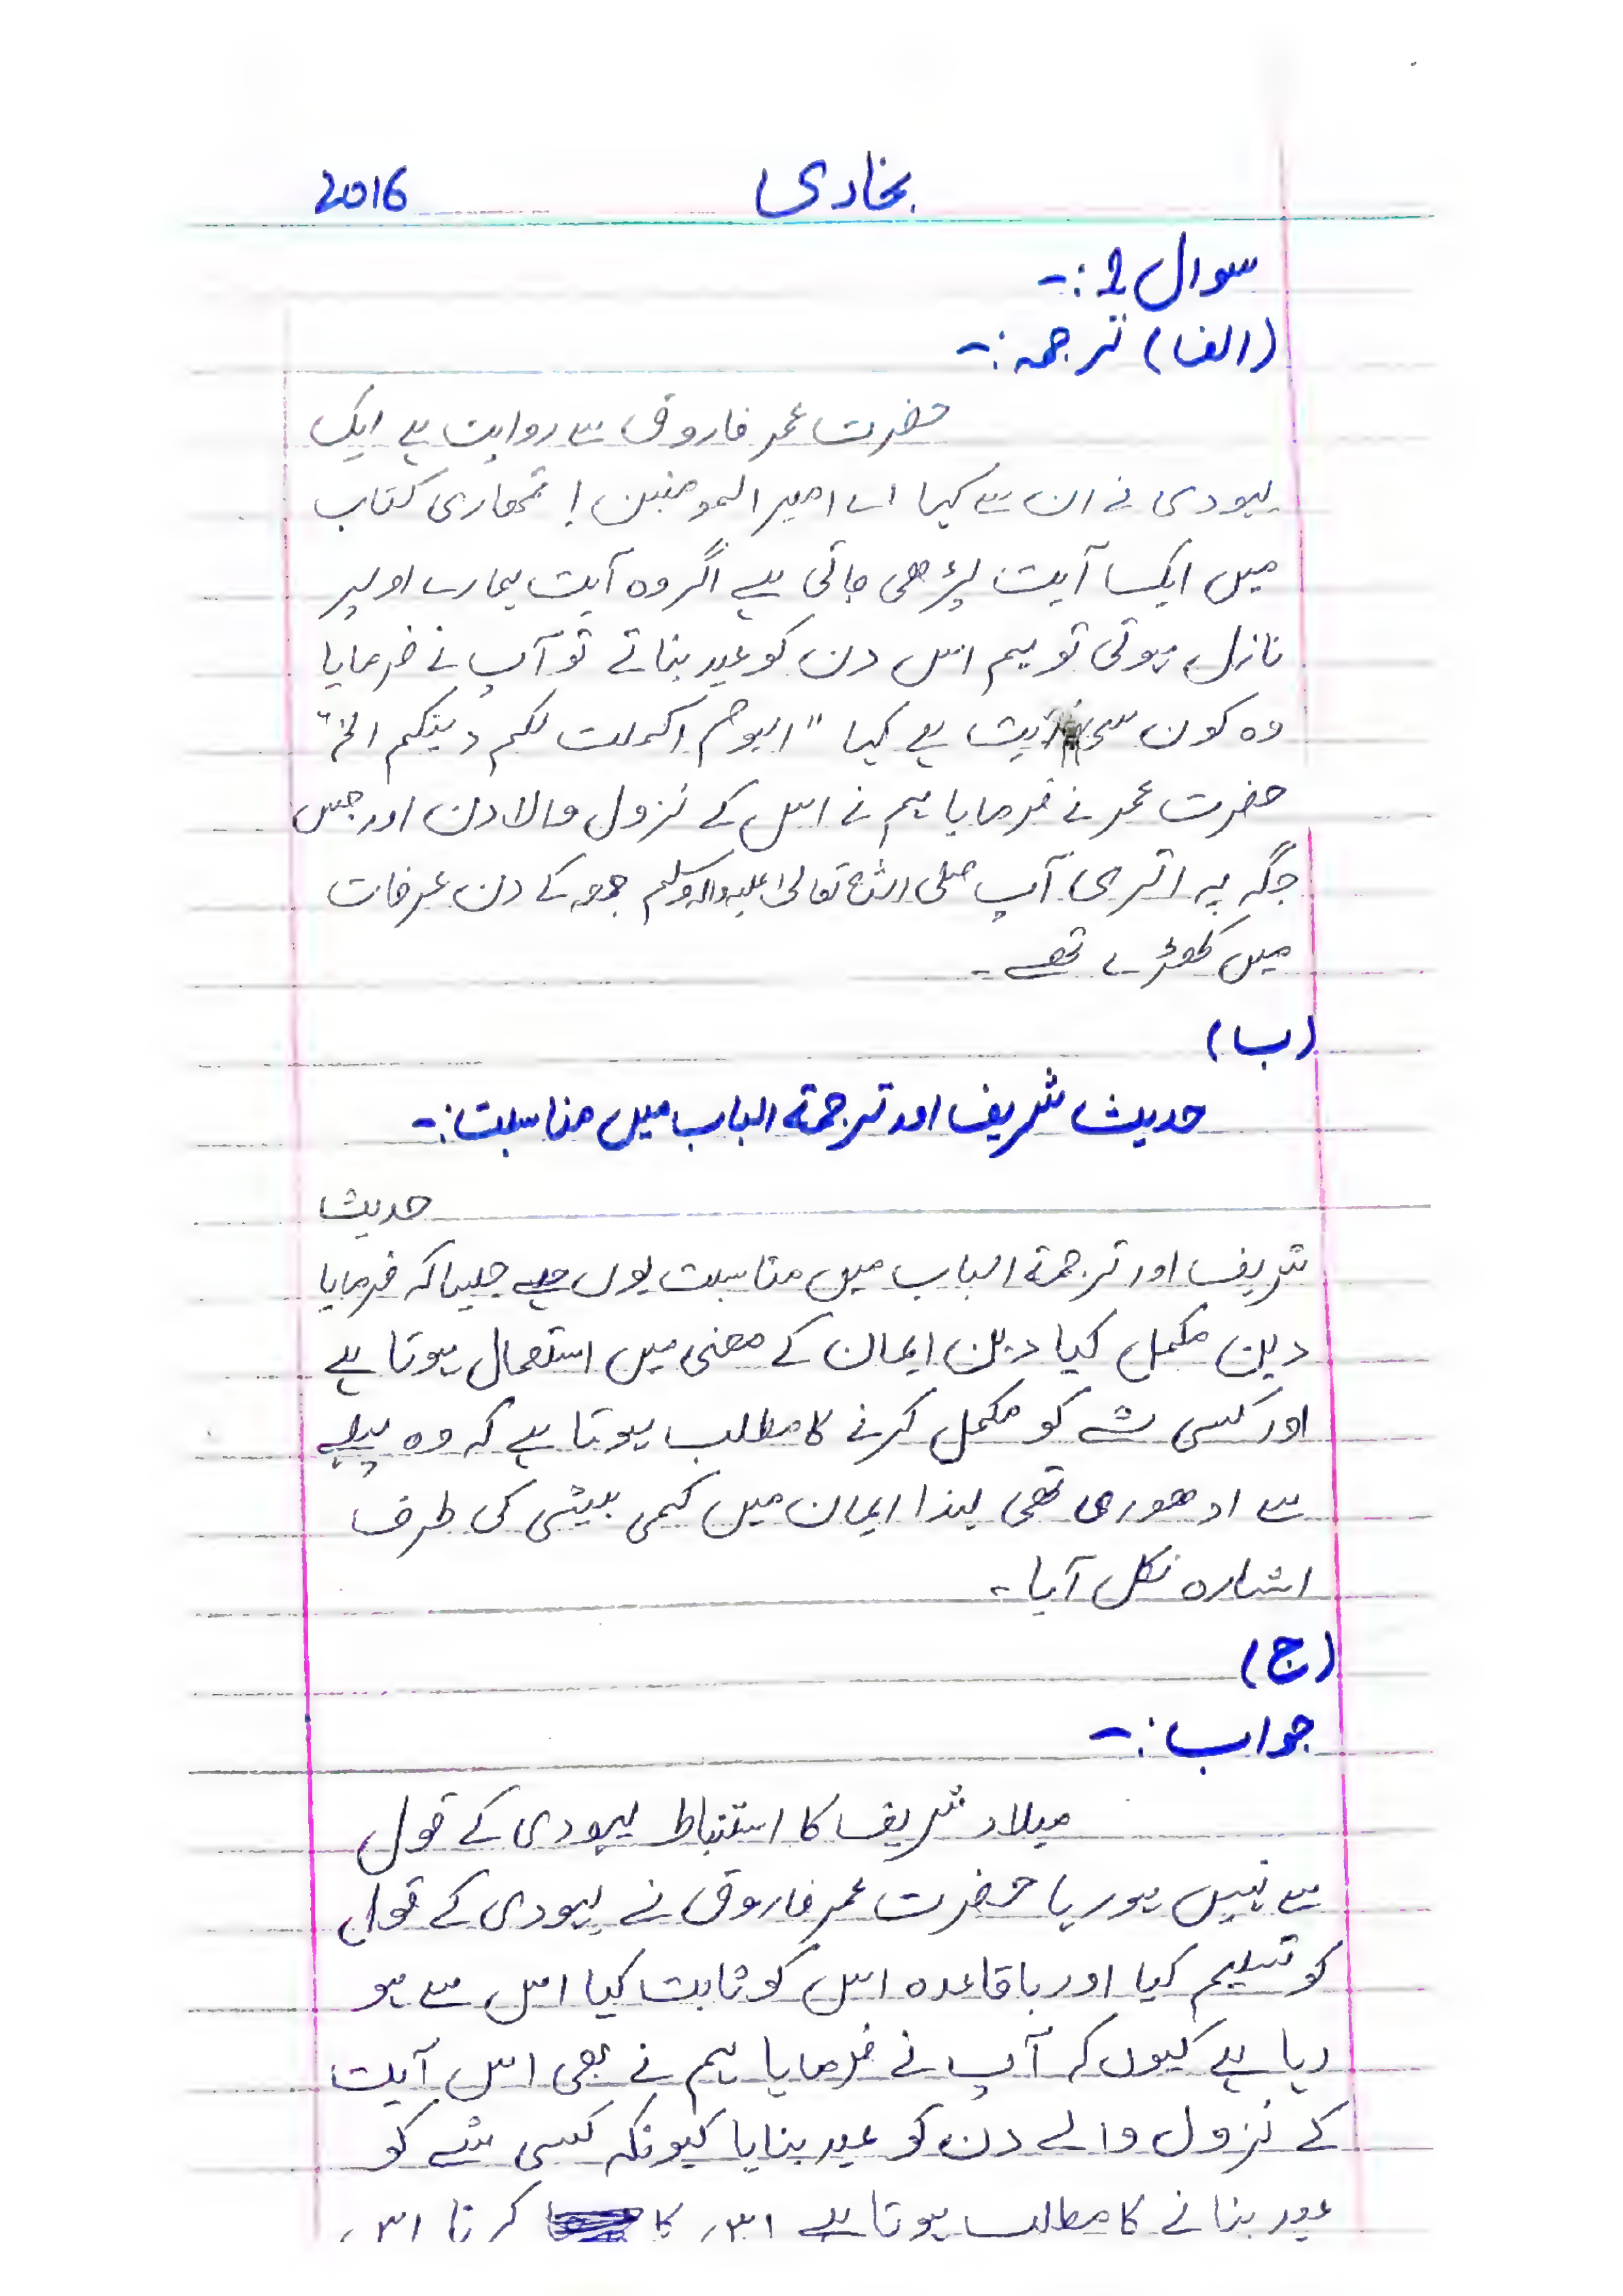 بخاری 2016
سوال 1:-
(الف) ترجمہ:-
حضرت عمر فاروق سے روایت ہے ایک
یہودی نے ان سے کہا اے امیر المومنین! تمھاری کتاب
میں ایک آیت پڑھی جاتی ہے اگر وہ آیت ہمارے اوپر
نازل ہوتی تو ہم اس دن کو عید بناتے تو آپ نے فرمایا
وہ کون سی آیت ہے کہا "الیوم اکملت لکم دینکم الخ"
حضرت عمر نے فرمایا ہم نے اس کے نزول والا دن اور جس
جگہ پہ اتری آپ صلی اللہ تعالیٰ علیہ والہ وسلم جمعہ کے دن عرفات
میں کھڑے تھے۔
(ب)
حدیث شریف اور ترجمۃ الباب میں مناسبت:-
حدیث
شریف اور ترجمۃ الباب میں مناسبت یوں ہے جیسا کہ فرمایا
دین مکمل کیا دین ایمان کے معنی میں استعمال ہوتا ہے
اور کسی شے کو مکمل کرنے کا مطلب ہوتا ہے کہ وہ پہلے
سے ادھوری تھی لہذا ایمان میں کمی بیشی کی طرف
اشارہ نکل آیا۔
(ج)
جواب:-
میلاد شریف کا استنباط یہودی کے قول
سے نہیں ہو رہا حضرت عمر فاروق نے یہودی کے قول
کو تسلیم کیا اور باقاعدہ اس کو ثابت کیا اس سے ہو
رہا ہے کیوں کہ آپ نے فرمایا ہم نے بھی اس آیت
کے نزول والے دن کو عید بنایا کیونکہ کسی شے کو
عید بنانے کا مطلب ہوتا ہے اس کا کرنا اس